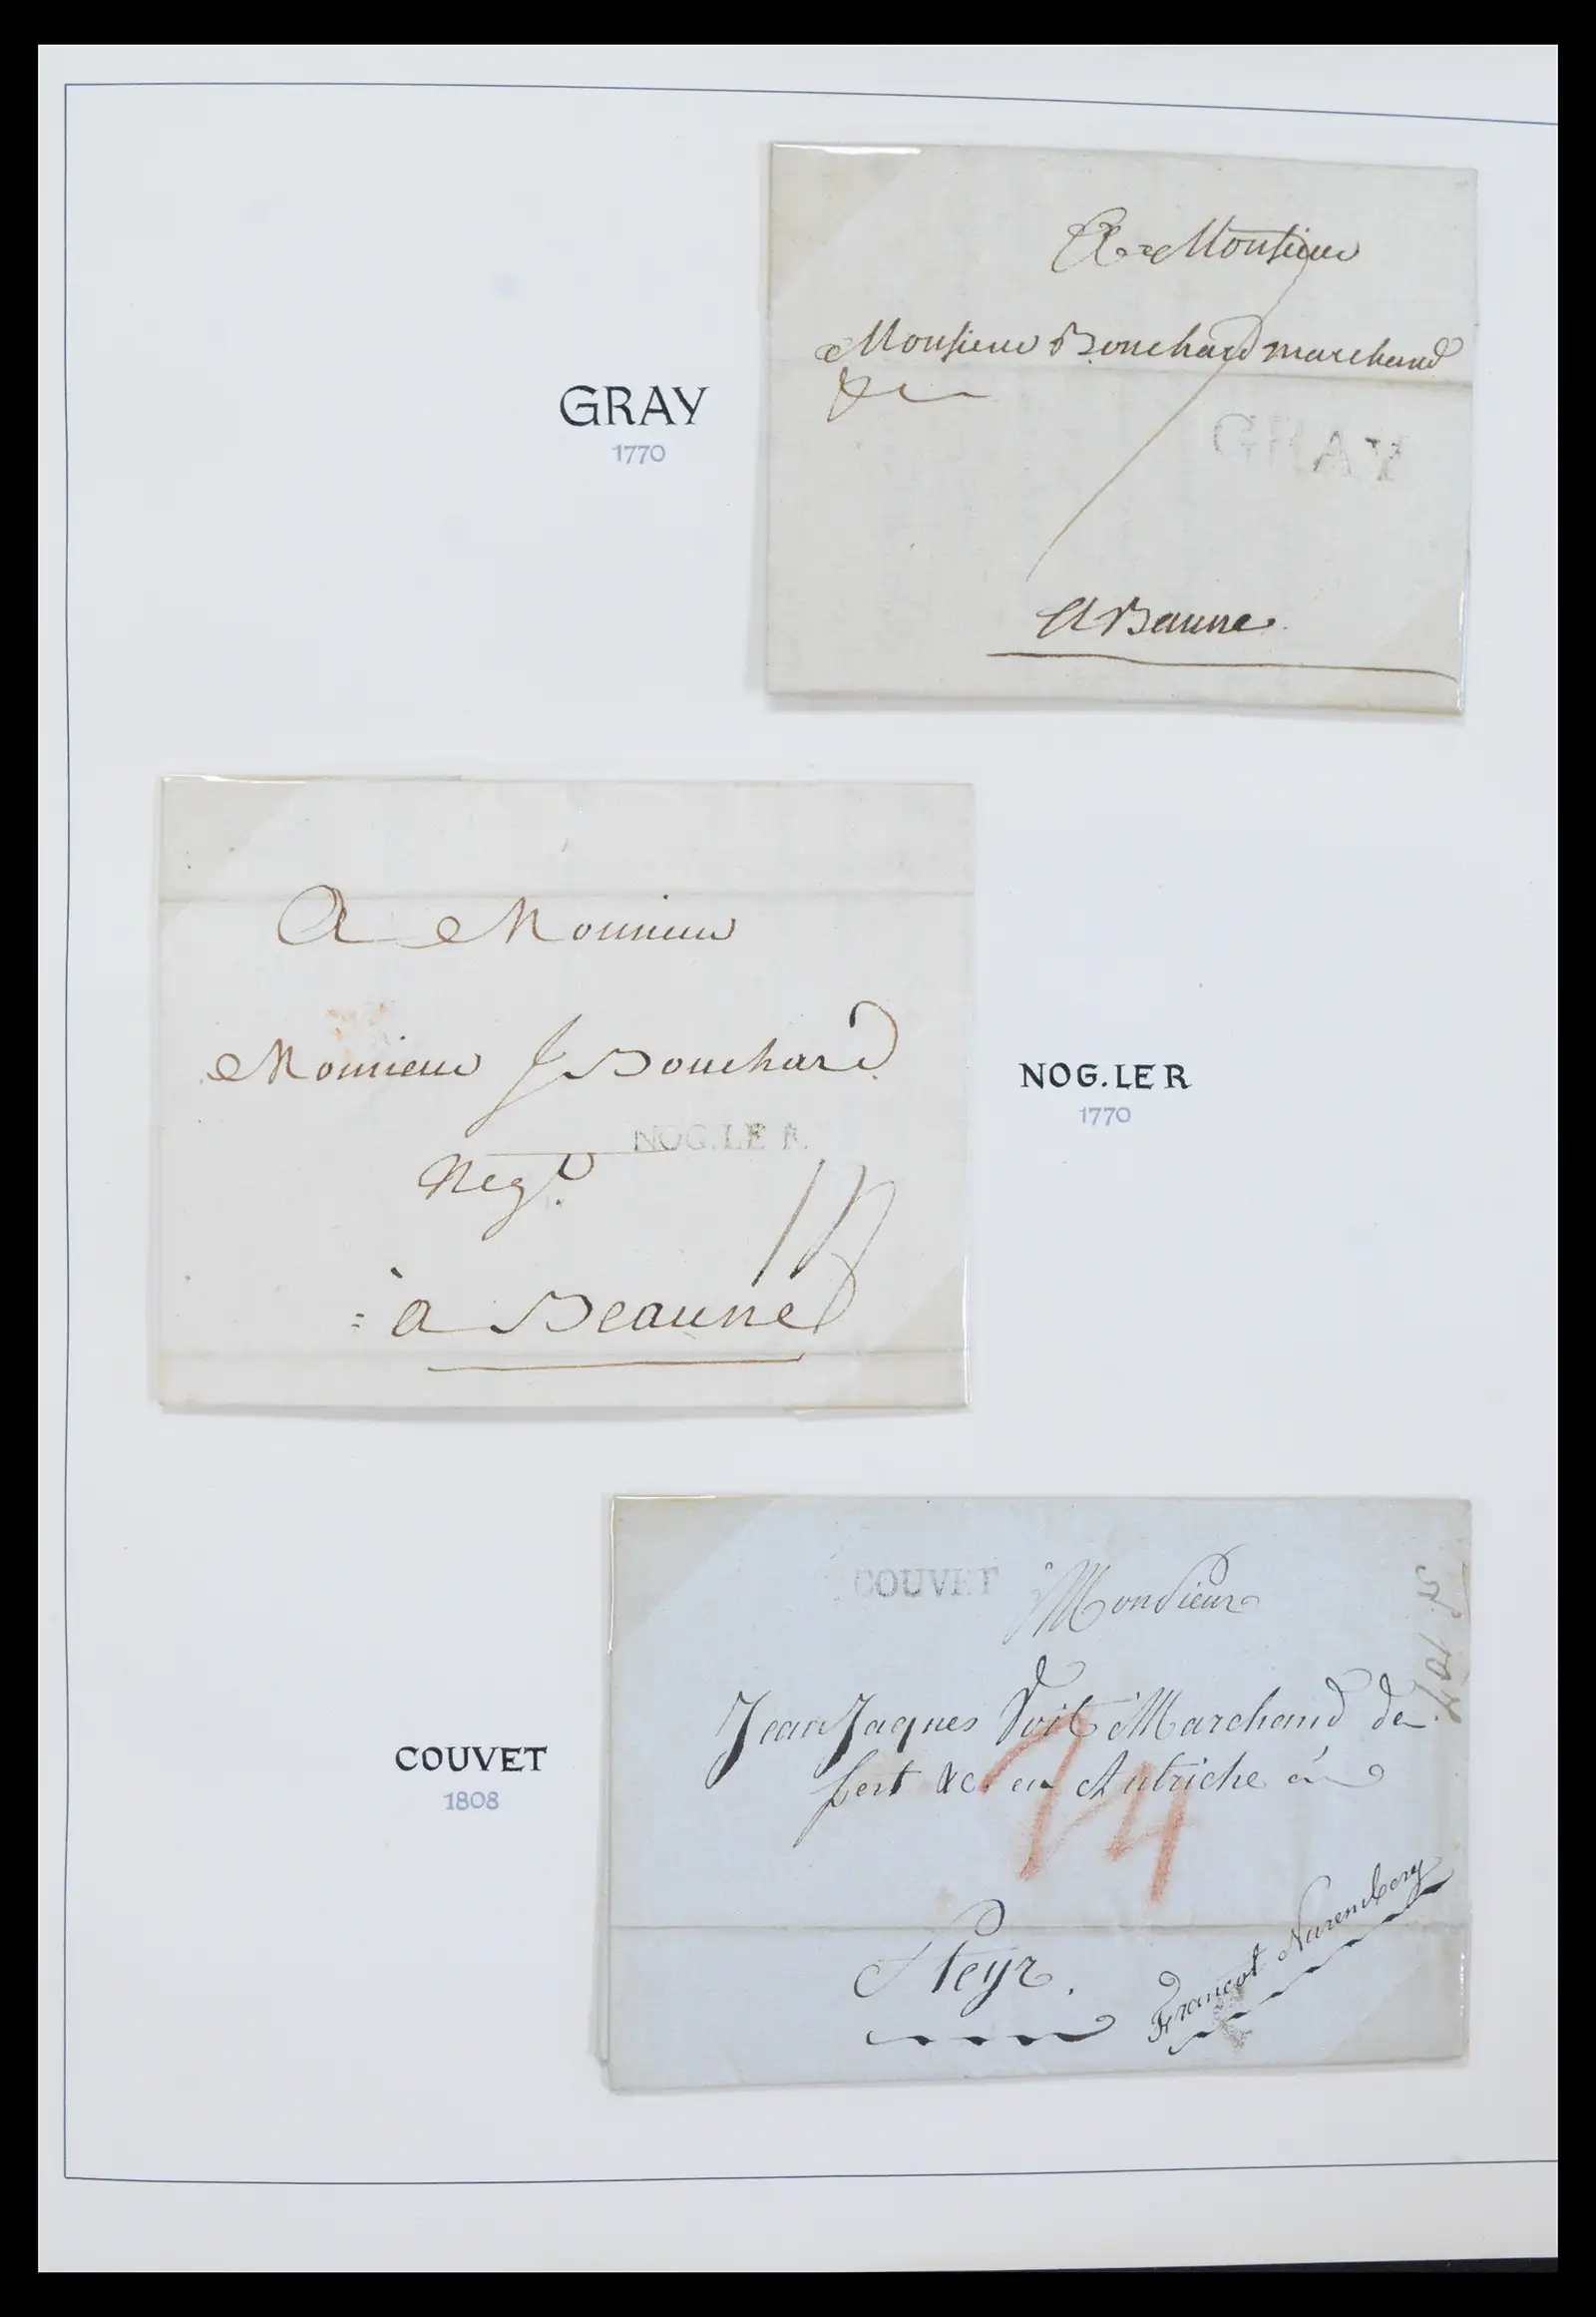 A Monsieur
Monsieur Bouchard marchand
GRAY
1770
GRAY
A Beaune
A Monsieur
Monsieur J Bouchard
NOG.LE R.
Negt.
à Beaune
NOG.LE R
1770
COUVET
Monsieur
Jean Jaques Voit Marchand de
fert &c. en Autriche à
COUVET
1808
Steyr.
Francot Nuremberg